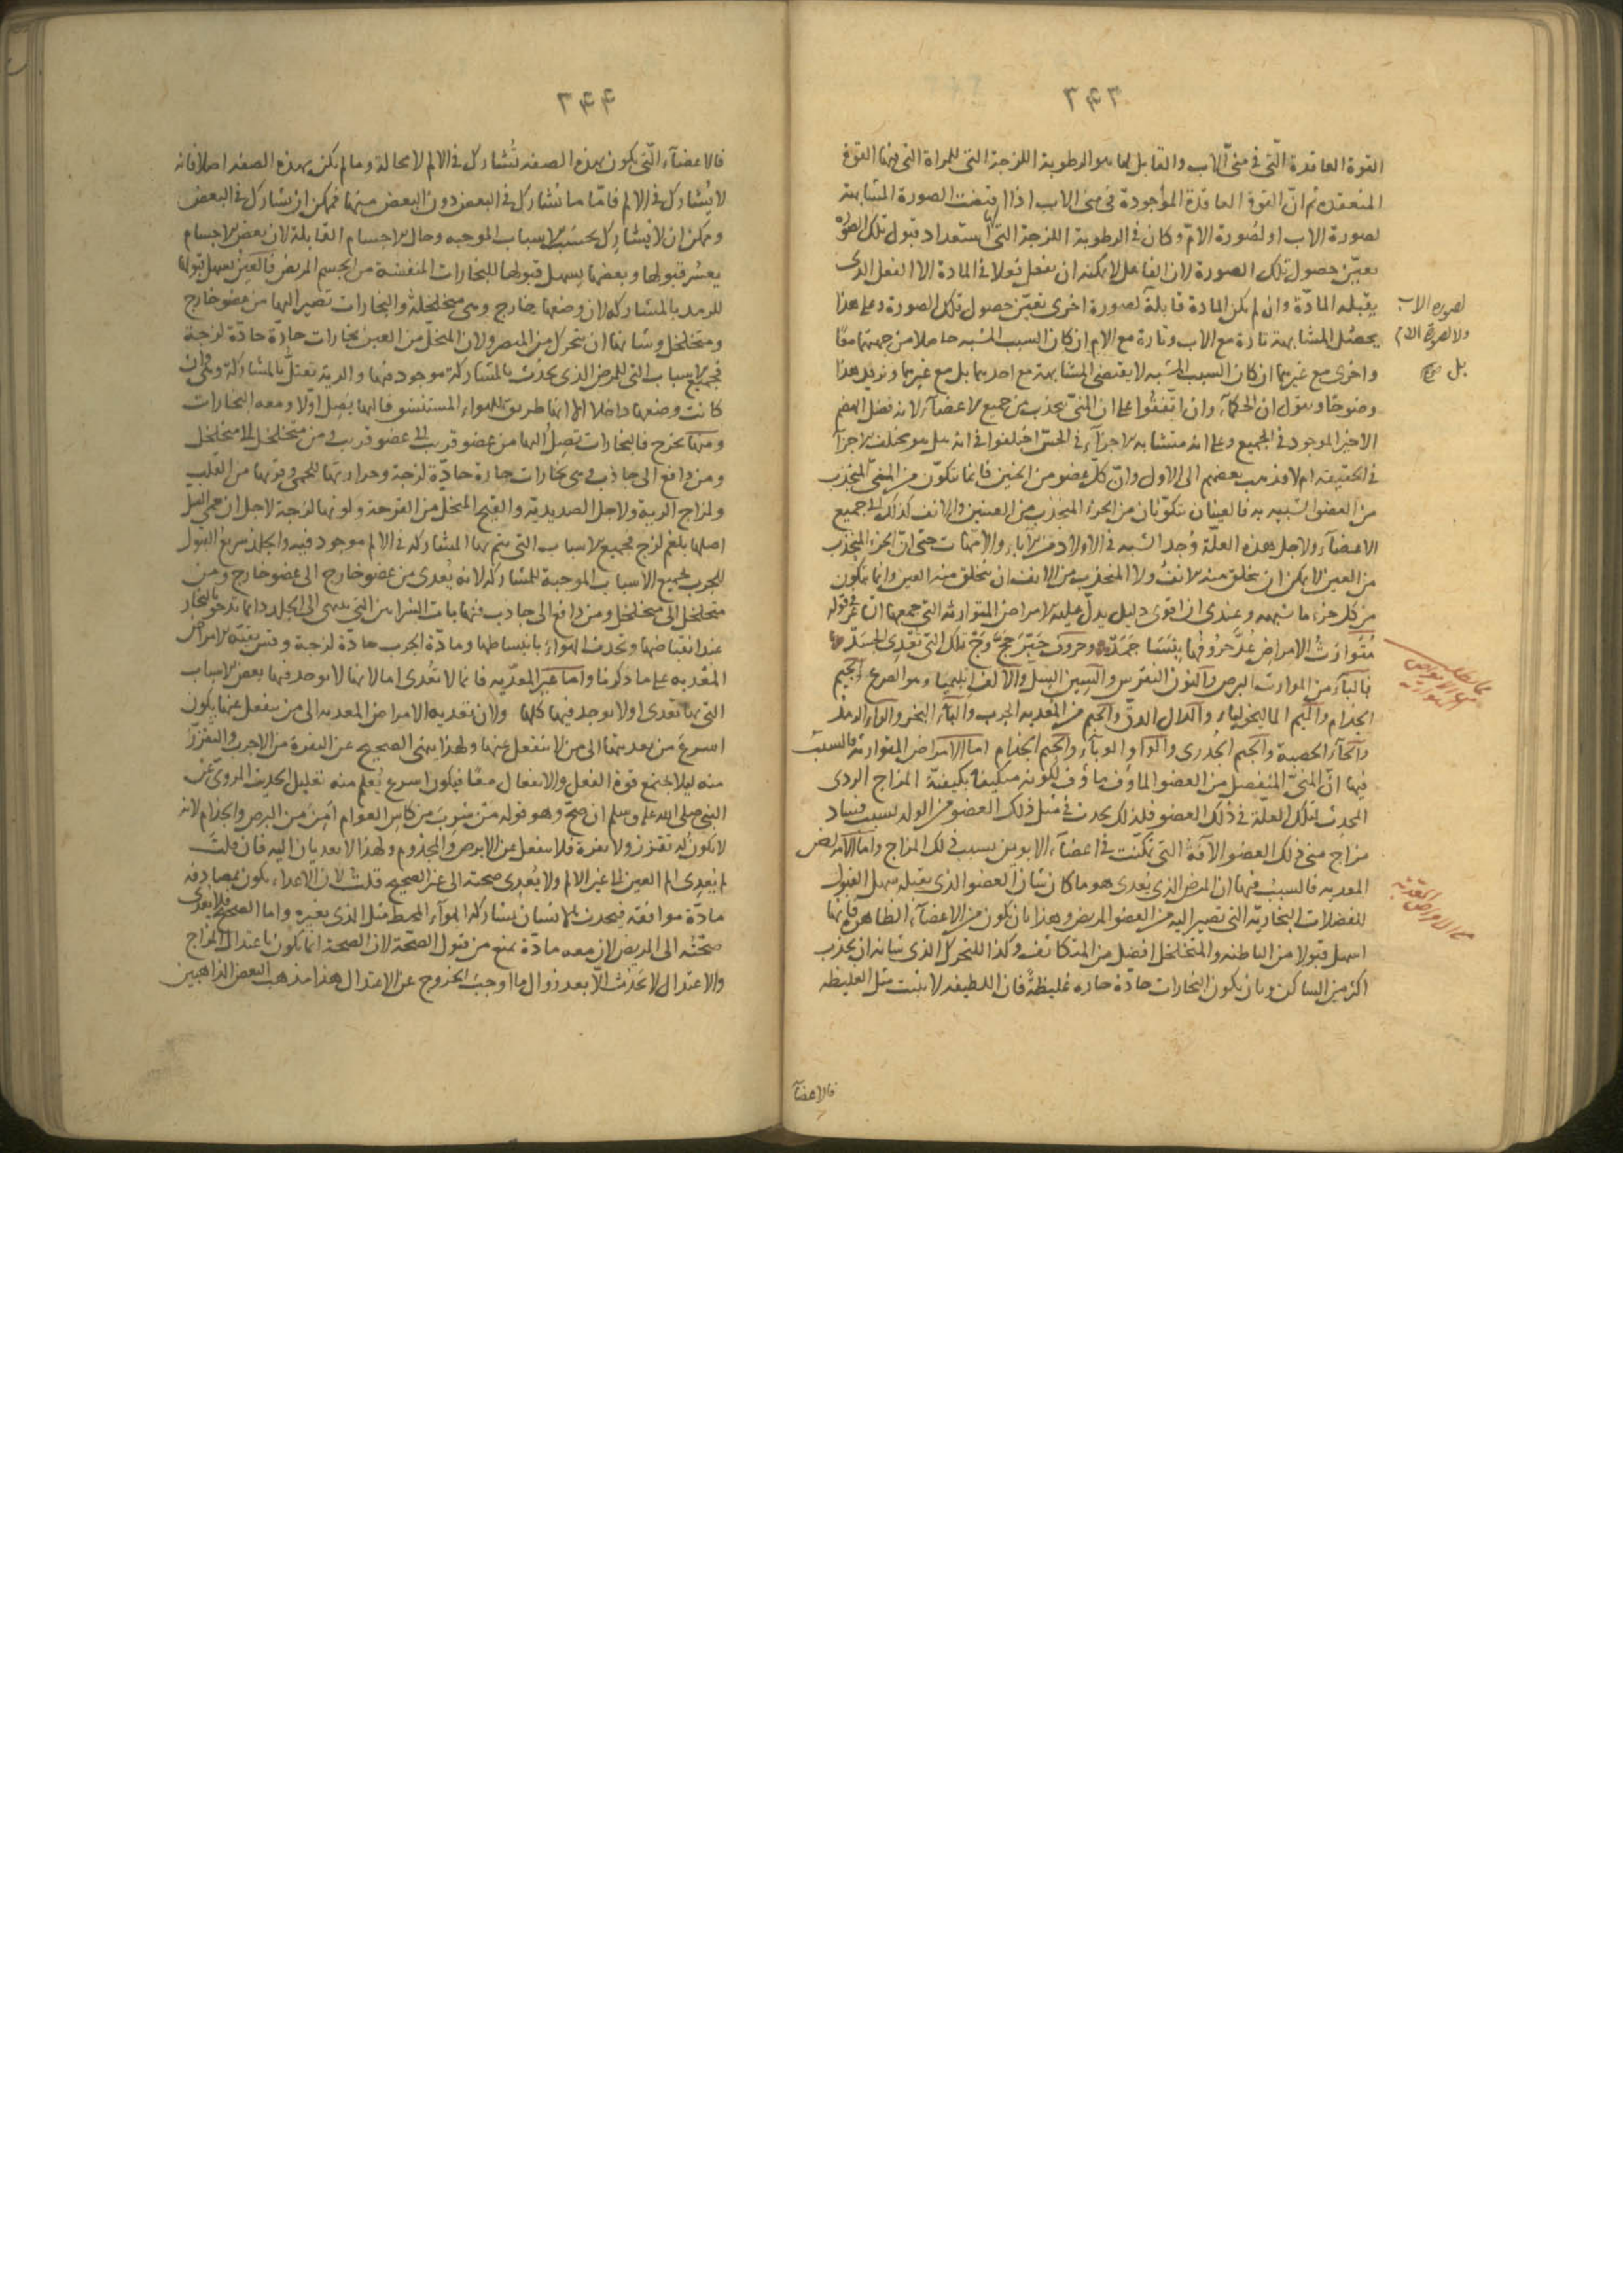 ٣٤٣
القوة العاقدة التى فى منى الاب والقابل لها هو الرطوبة اللزجة التى للمراة التى فيها القوة
المنعقدة ثم ان القوة العاقدة الموجودة فى منى الاب اذا اقتضت الصورة المتشابهة
لصورة الاب او لصورة الام وكان فى الرطوبة اللزجة التى استعداد قبول تلك الصورة
تعين حصول تلك الصورة لان الفاعل لا يمكنه ان يفعل فعلا فى المادة الا الفعل الذى
يقبله المادة وان لم تكن المادة قابلة لصورة اخرى تعين حصول تلك الصورة وعلى هذا
لصورة الاب
ولا لصورة الام
بل
يحصل المشابهة تارة مع الاب وتارة مع الام ان كان السبب المشبه حاصلا من جهتهما معا
واخرى مع غيرهما ان كان السبب المشبه لا يقتضى المشابهة مع احدهما بل مع غيرهما ونزيد هذا
وضوحا ونقول ان الحكماء وان اتفقوا على ان المنى يجذب من جميع الاعضاء لانه فضل الهضم
الاخير الموجود فى الجميع وعلى انه متشابه الاجزاء فى الحس اختلفوا فى انه هل هو مختلف الاجزاء
فى الحقيقة ام لا فذهب بعضهم الى الاول وان كل عضو من الجنين فانما تكون من المنى المنجذب
من العضو الشبيه به فالعينان تتكونان من الجزء المنجذب من العينين والانف لذلك الى جميع
الاعضاء ولاجل هذه العلة وجد الشبه فى الاولاد من الآباء والامهات حتى ان الجزء المنجذب
من العين لا يمكن ان يخلق منه الانف ولا المنجذب من الانف ان يتخلق منه العين وانما يتكون
من كل جزء ما شبهه وعندى ان اقوى دليل يدل عليه الامراض المتوارثة التى جمعها الشاعر فى قوله
متوارث الامراض عد حروفها
فالباء من الموارث البرص والنون النقرس والسين السل والالف وهو الصرع والجيم
الجذام والميم الماليخوليا والدال الدق والجيم من المعدية الجرب والباء البخر والراء الرمد
والحاء الحصبة والجيم الجدرى والواو الوباء والجيم الجذام اما الامراض المتوارثة فالسبب
فيها ان المنى المنفصل من العضو الماؤف ماؤف لكونه متكيفا بكيفية المزاج الردى
المحدث لتلك العلة فى ذلك العضو فلذلك يحدث فى مثل ذلك العضو من الولد بسبب فساد
مزاج منى ذلك العضو الآفة التى تمكنت فى اعضاء الابوين بسبب ذلك المزاج واما الامراض
المعدية فالسبب فيها ان المرض الذى يعدى هو ما كان شان العضو الذى يقبله سهل القبول
للفضلات البخارية التى تصير اليه من العضو المريض وهذا بان يكون من الاعضاء الظاهرة فانها
اسهل قبولا من الباطنة والمتخلخل افضل من المتكاثف وكذا المتحرك الذى شانه ان يجذب
اكثر من الساكن وبان يكون البخارات حادة حارة غليظة فان اللطيفة لا يثبت مثل الغليظة
فالاعضاء
٣٤٤
فالاعضاء التى يكون بهذه الصفة تشارك فى الالم لا محالة وما لم يكن بهذه الصفة اصلا فانه
لا يشارك فى الالم فاما ما تشارك فى البعض دون البعض منها فيمكن ان تشارك فى البعض
ويمكن ان لا يشارك بحسب الاسباب الموجبه وحال الاجسام القابلة لان بعض الاجسام
يعسر قبولها وبعضها يسهل قبولها للبخارات المنفشة من الجسم المريض فالعين يسهل قبولها
للرمد بالمشاركة لان وضعها خارج وهى متخلخلة والبخارات تصير اليها من عضو خارج
ومتخلخل وشانها ان تتحرك من المبصر ولان المتحلل من العين بخارات حارة حادة لزجة
فجميع الاسباب التى للمرض الذى يحدث بالمشاركة موجود فيها والرية تعتل بالمشاركة وهى وان
كانت وضعها داخلا الا انها طريق للهواء المستنشق فاليها يصل اولا ومعه البخارات
ومنها يخرج فالبخارات يصل اليها من عضو قريب الى عضو قريب ومن متخلخل الى متخلخل
ومن دافع الى جاذب وهى بخارات حارة حادة لزجة وحرارتها للحمى وقربها من القلب
ولمزاج الرية ولاجل الصديدية والقيح المتحلل من القرحة ولونها لزجة لاجل ان
اصلها بلغم لزج فجميع الاسباب التى يتم بها المشاركة فى الالم موجود فيه والجلد سريع القبول
للجرب لجميع الاسباب الموجبة للمشاركة لانه يعدى من عضو خارج الى عضو خارج ومن
متخلخل الى متخلخل ومن دافع الى جاذب فنهايات الشرايين التى ينتهى الى الجلد دائما تدخر البخار
عند انقباضها وتجذب الهواء بانبساطها ومادة الجرب حادة لزجة وقس بقية الامراض
المعدية على ما ذكرنا واما غير المعدية فانما لا تعدى اما لانها لا توجد فيها بعض الاسباب
التى بها تعدى اولا توجد فيها كلها ولان تعدية الامراض المعدية الى من ينفعل عنها يكون
اسرع من تعديتها الى من لا ينفعل عنها ولهذا ينهى الصحيح عن النفرة من الاجرب والتقزز
منه ليلا يجتمع قوة الفعل والانفعال معا فيكون اسرع يعلم منه تعليل الحديث المروى عن
النبى صلى الله عليه وسلم ان صح وهو قوله من شرب من كاس العوام امن من البرص والجذام لانه
لا يكون له تقزز ولا نفرة فلا ينفعل عن الابرص والمجذوم ولهذا لا تعديان اليه فان قلت
لم يعدى الم العين الى غير الالم ولا يعدى صحته الى غير الصحيح قلت لان الاعداء يكون بمصادفة
مادة موافقة فيحدث الانسان يشاركه الهواء المحيط مثل الذى يغيره واما الصحيح فلا يعدى
صحته الى المريض لان معه مادة تمنع من قبول الصحة لان الصحة انما يكون باعتدال المزاج
والاعتدال لا يحدث الا بعد زوال ما اوجب الخروج عن الاعتدال هذا مذهب البعض الذاهبين